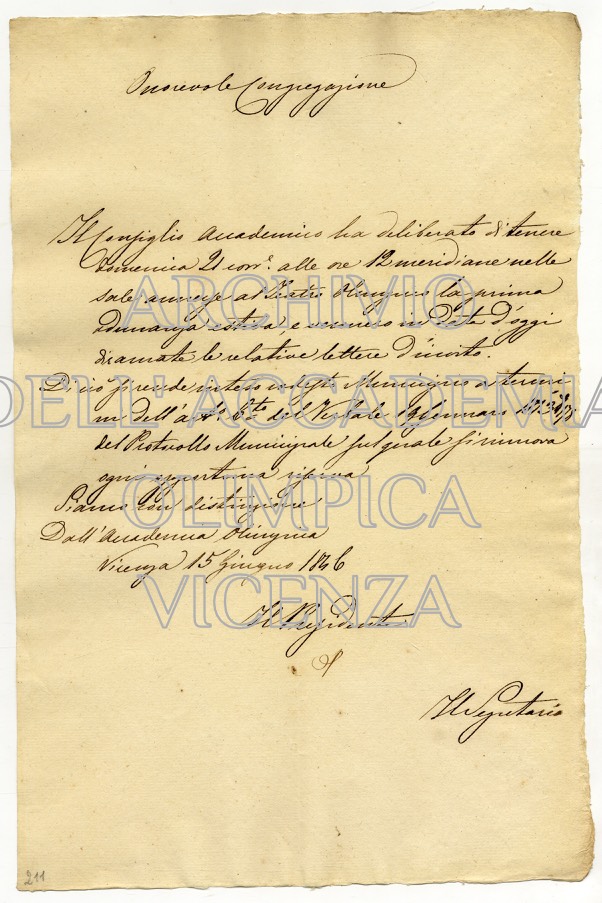 Onorevole Congregazione
Il Consiglio Accademico ha deliberato di tenere
domenica 21 corr.e alle ore 12 meridiane nelle
sale annesse al Teatro Olimpico la prima
Adunanza estiva, e vennero in Data d'oggi
diramate le relative lettere d'invito.
Di ciò si rende inteso Municipio a termini
dell'a 6.to del Verbale 19 Gennaro
del Protocollo Municipale sul quale si rinnova
ogni opportuna riserva
Siamo con distinzione
Dall'Accademia Olimpica
Vicenza 15 Giugno 1846
Il Presidente
Il Segretario
211
ARCHIVIO
DELL'ACCADEMIA
OLIMPICA
VICENZA